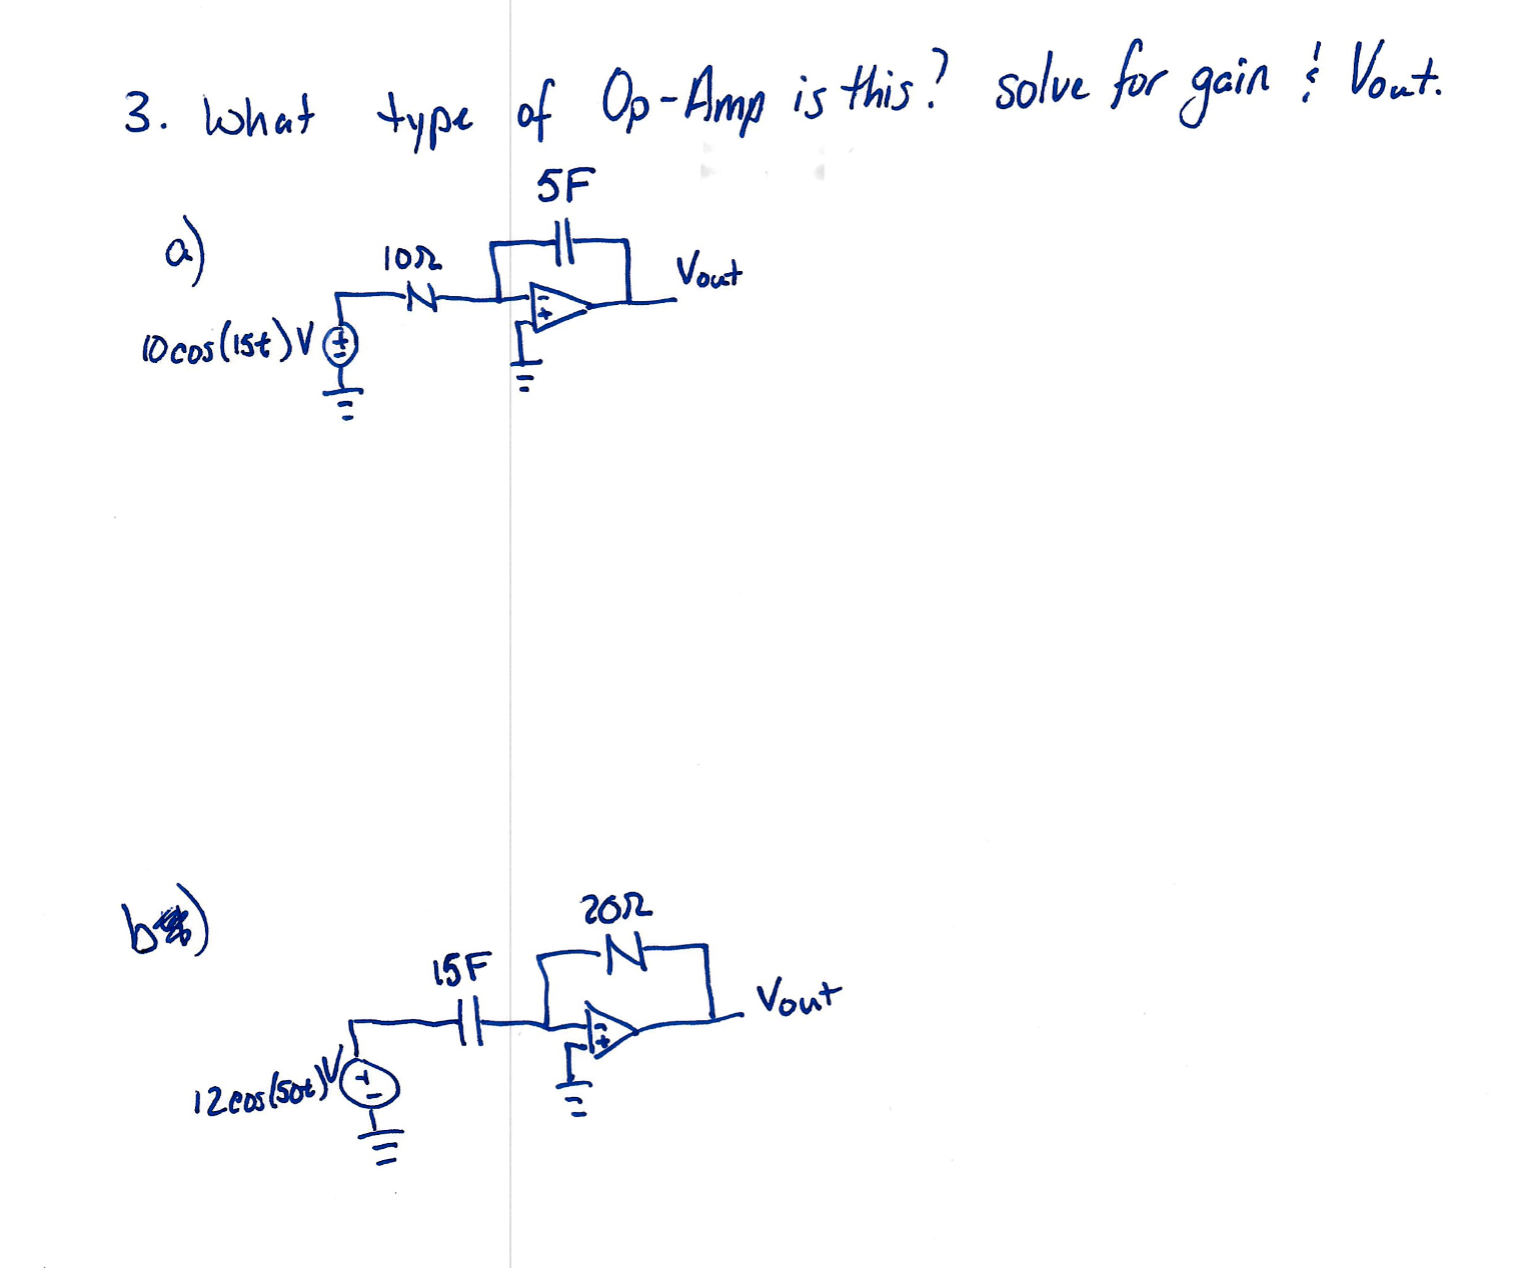 3. What type of Op-Amp is this? solve for gain & Vout.
5F
a)
10Ω
Vout
10cos(15t)V
-
+
±
20Ω
b)
15F
Vout
12cos(50t)V
-
+
+
-